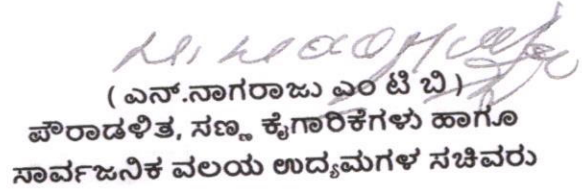 ( ಎನ್.ನಾಗರಾಜು ಎಂ ಟಿ ಬಿ )
ಪೌರಾಡಳಿತ, ಸಣ್ಣ ಕೈಗಾರಿಕೆಗಳು ಹಾಗೂ
ಸಾರ್ವಜನಿಕ ವಲಯ ಉದ್ಯಮಗಳ ಸಚಿವರು